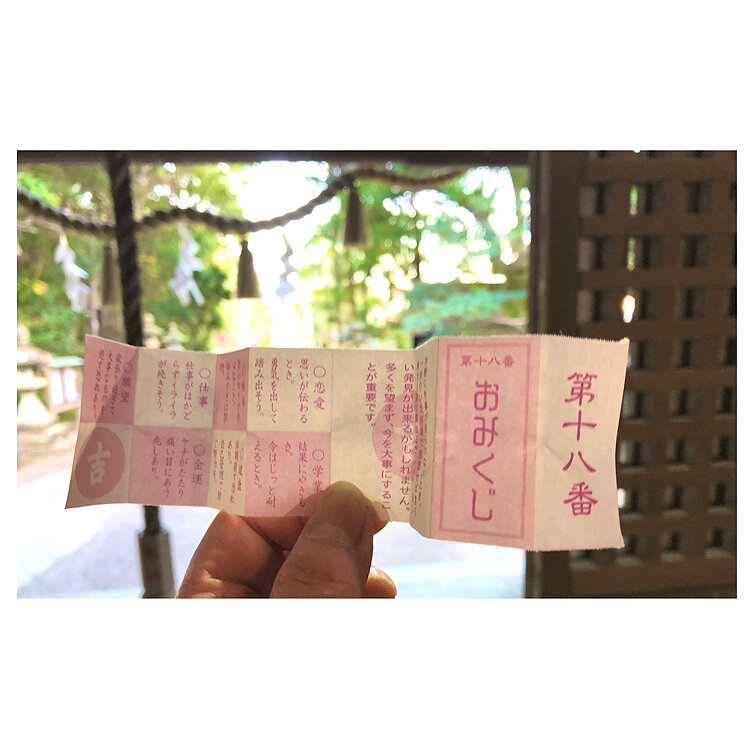 第十八番
第十八番
おみくじ
い発見が出来るかもしれません。
多くを望まず、今を大事にするこ
とが重要です。
〇恋愛
思いが伝わる
とき。
勇気を出して
踏み出そう。
〇学業
結果にやきも
き。
今はじっと耐
えるとき。
〇仕事
仕事がはかど
らずイライラ
が続きそう。
〇金運
ケチがたたり
痛い目にあう
兆しあり。
〇願望
大事なものを
吉